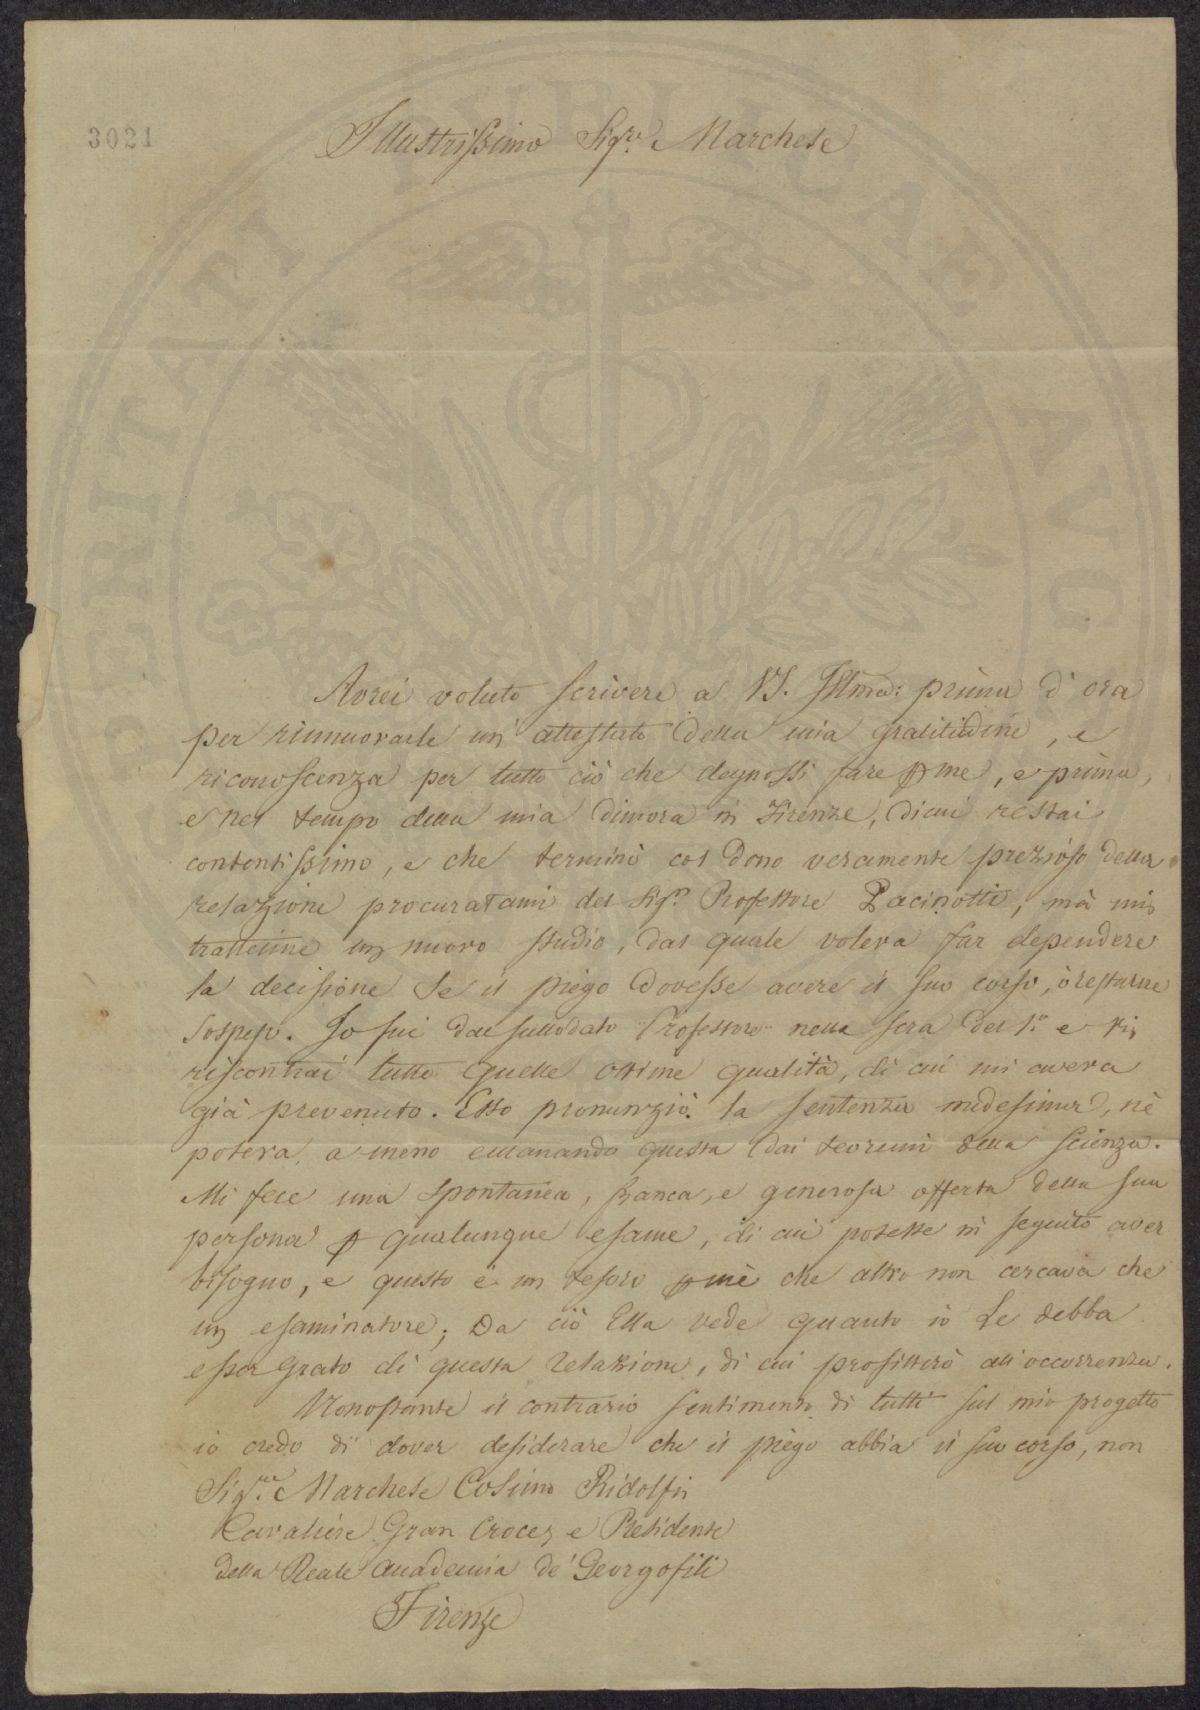 3021
Illustrissimo Sig.re Marchese
PROSPERITATI PVBLICAE AVG
Avrei voluto scrivere a VS. Illma: prima d'ora
per rinnuovarle un attestato della mia gratitudine, e
riconoscenza per tutto ciò che degnossi fare p me, e prima,
e nel tempo della mia dimora in Firenze, di cui restai
contentissimo, e che terminò col dono veramente prezioso della
relazione procuratami del Sigr. Professore Pacinotti, mà mi
trattenne un nuovo studio, dal quale voleva far dependere
la decisione se il piego dovesse avere il suo corso, ò restarne
sospeso. Io fui dal sullodato Professore nella sera del 1.o e vi
riscontrai tutte quelle ottime qualità, di cui mi aveva
già prevenuto. Esso pronunziò la sentenza medesima, nè
poteva a meno emanando questa dai teoremi della scienza.
Mi fece una spontanea, franca, e generosa offerta della sua
persona p qualunque esame, di cui potesse in seguito aver
bisogno, e questo è un tesoro p me che altro non cercava che
un esaminatore; Da ciò Ella vede quanto io Le debba
esser grato di questa relazione, di cui profitterò all'occorrenza.
Nonostante il contrario sentimento di tutti sul mio progetto
io credo di dover desiderare che il piego abbia il suo corso, non
Sig.re Marchese Cosimo Ridolfi
Cavaliere Gran Croce, e Presidente
della Reale Accademia de' Georgofili
Firenze